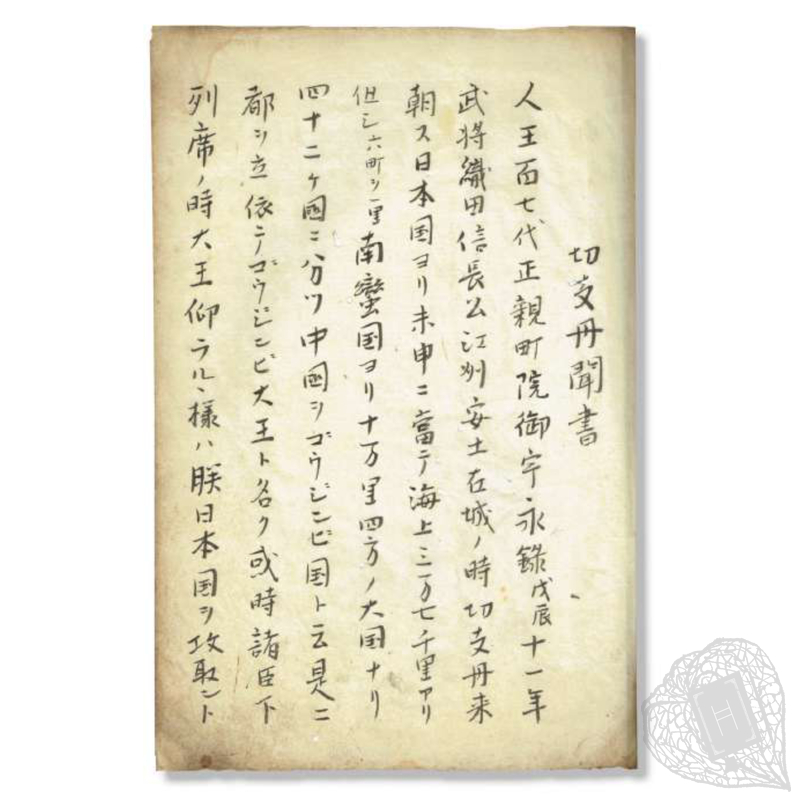 切支丹聞書
人王百七代正親町院御宇永録戊辰十一年
武将織田信長公江州安土在城ノ時切支丹来
朝ス日本国ヨリ未申ニ當テ海上三万七千里アリ
但シ六町ヲ一里南蠻国ヨリ十万里四方ノ大国ナリ
四十二ケ國ニ分ツ中國ヲゴウジンビ国ト云是ニ
都ヲ立依テゴウジンビ大王ト名ク或時諸臣下
列席ノ時大王仰ラルヽ様ハ朕日本国ヲ攻取ント
H